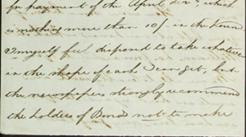 for payment of the April Div, which
is nothing more than 10/. in the town
I myself feel disposed to take whatever
in the shape of cash I can get, but
the newspapers strongly recommend
the holders of Bonds not to make